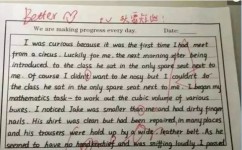 Better
We are making progress every day. Date:
I was curious because it was the first time I had meet
from a circus. Luckily for me, the next morning after being
introduced to the class he sat in the only spare seat next to
me. Of course I didn't want to be nosy but I couldn't
the class he sat in the only spare seat next to me. I began my
mathematics task - to work out the cubic volume of various
buxes. I noticed Jake was smaller than me and had dirty finger
nails. His shirt was clean but had been repaired in many places
and his trousers were hold up by a wide leather belt. As he
seemed to have no handkerchief and was sniffing loudly I